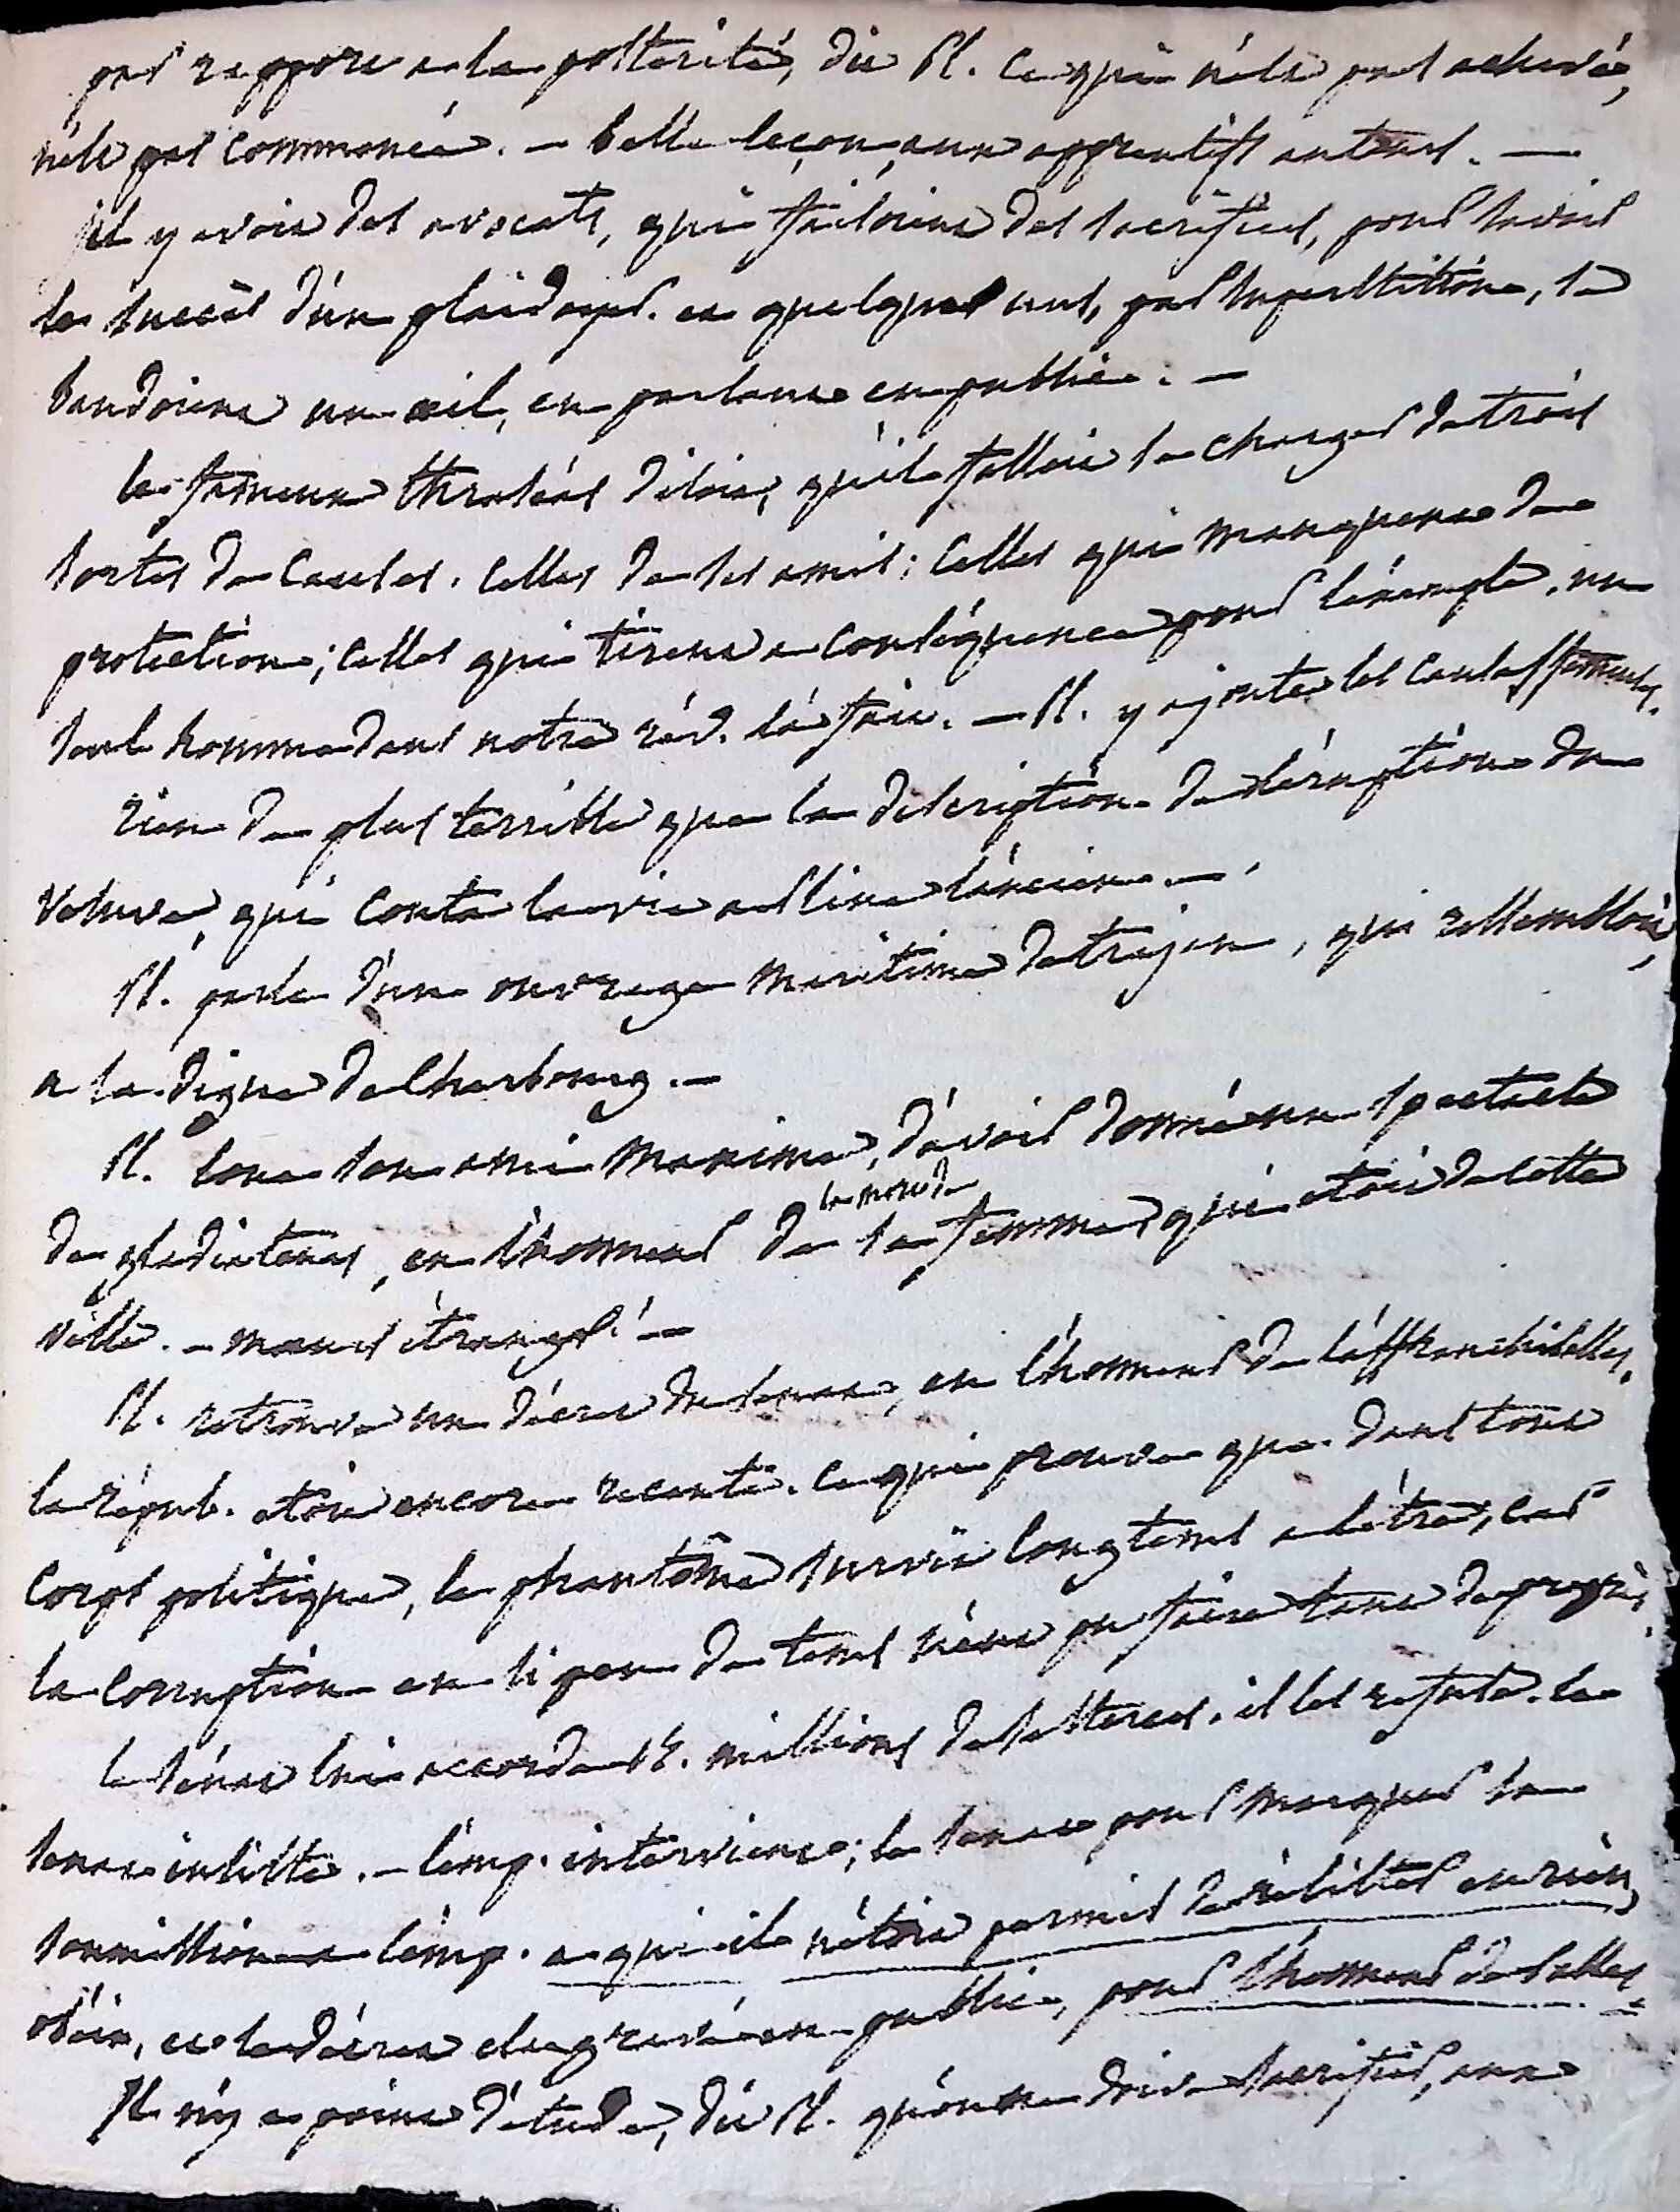 par rapport a la postérité, dit Pl. ce qui n'est pas achevé,
n'est pas commencé. — belle leçon, aux apprentifs auteurs. —
il y avoit des avocats, qui faisoient des sacrifices, pour savoir
le succès d'un plaidoyer. et quelques uns, par superstition, se
bandoient un œil, en parlant en public. —
le fameux thraséas disoit, qu'il falloit se charger de trois
sortes de causes. celles de ses amis; celles qui manquent de
protection; celles qui tirent a conséquence pour l'exemple. un
seul homme dans notre rév. l'a fait. — Pl. y ajoute les causes fameuses.
rien de plus terrible que la description de l'éruption du
vesuve, qui couta la vie a Pline l'ancien. —
Pl. parle d'un ouvrage maritime de trajan, qui ressembloit,
a la digue de Cherbourg. —
Pl. loue son ami maxime, d'avoir donné un spectacle
de gladiateurs, en l'honneur de
la mort de
sa femme qui etoit de cette
ville. — mœurs étranges! —
Pl. retrouve un décret du senat, en l'honneur de l'affranchi Pallas.
la répub. etoit encore recente. ce qui prouve que dans tout
corps politique, le phantôme survit longtems a l'être, car
la corruption en si peu de tems n'eut pu faire tant de progrès.
le sénat lui accorda 15. millions de sesterces. il les refuse. le
senat insiste. — l'emp. intervient; le senat pour marquer sa
soumission a l'emp. a qui il n'étoit permis de résister en rien,
obéit, et le décret est gravé en public, pour l'honneur de Pallas.
Il n'y a point d'etude, dit Pl. qu'on ne doive sacrifier, aux